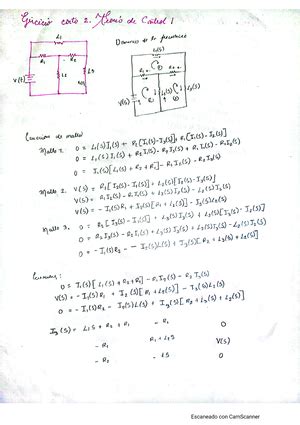 Ejercicio corto 2. Teoría de Control 1
L1
R1
R2
V(t)
L2
L3
Dominio de la frecuencia
L1(s)
R1
R2
V(s)
L2(s)
L3(s)
Ecuaciones de mallas
Malla 1.
0 = L1(s)I1(s) + R1[I1(s)-I2(s)] + R2[I1(s)-I3(s)]
0 = L1(s)I1(s) + R2I1(s) - R2I3(s) + R1I1(s) - R1I2(s)
0 = I1(s)[L1(s) + R2 + R1] - R1I2(s) - R2I3(s)
Malla 2.
V(s) = R1[I2(s)-I1(s)] + L2(s)[I2(s)-I3(s)]
V(s) = R1I2(s) - R1I1(s) + L2(s)I2(s) - L2(s)I3(s)
V(s) = -I1(s)R1 + I2(s)[R1 + L2(s)] - I3(s)L2(s)
Malla 3.
0 = R2[I3(s)-I1(s)] + L3(s)I3(s) + L2(s)[I3(s)-I2(s)]
0 = R2I3(s) - R2I1(s) + L3(s)I3(s) + L2(s)I3(s) - L2(s)I2(s)
0 = -I1(s)R2 - I2(s)L2(s) + I3(s)[R2 + L3(s) + L2(s)]
0 = I1(s)[L1(s) + R2 + R1] - R1I2(s) - R2I3(s)
V(s) = -I1(s)R1 + I2(s)[R1 + L2(s)] - I3(s)L2(s)
0 = -I1(s)R2 - I2(s)L2(s) + I3(s)[R2 + L3(s) + L2(s)]
I3(s) = L1s + R2 + R1 - R1 0
- R1 R1 + L2s V(s)
- R2 - L2s 0
Escaneado con CamScanner